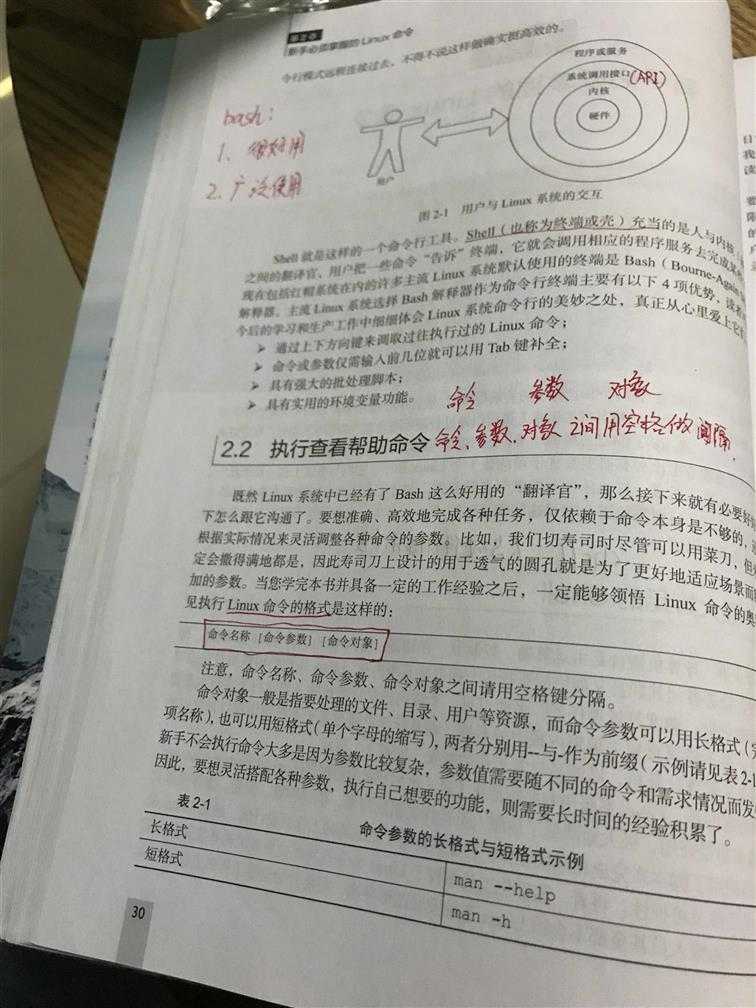 第2章
新手必须掌握的 Linux 命令
令行模式远程连接过去，不得不说这样做确实挺高效的。
程序或服务
系统调用接口 (API)
内核
硬件
用户
bash：
1、很好用
2、广泛使用
图 2-1 用户与 Linux 系统的交互
Shell 就是这样的一个命令行工具。Shell（也称为终端或壳）充当的是人与内核
之间的翻译官，用户把一些命令“告诉”终端，它就会调用相应的程序服务去完成某
现在包括红帽系统在内的许多主流 Linux 系统默认使用的终端是 Bash（Bourne-Again
解释器。主流 Linux 系统选择 Bash 解释器作为命令行终端主要有以下 4 项优势，读者
今后的学习和生产工作中细细体会 Linux 系统命令行的美妙之处，真正从心里爱上它
➢ 通过上下方向键来调取过往执行过的 Linux 命令；
➢ 命令或参数仅需输入前几位就可以用 Tab 键补全；
➢ 具有强大的批处理脚本；
➢ 具有实用的环境变量功能。
命令 参数 对象
2.2 执行查看帮助命令
命令、参数、对象 之间用空格做间隔
既然 Linux 系统中已经有了 Bash 这么好用的“翻译官”，那么接下来就有必要好
下怎么跟它沟通了。要想准确、高效地完成各种任务，仅依赖于命令本身是不够的，
根据实际情况来灵活调整各种命令的参数。比如，我们切寿司时尽管可以用菜刀，但
定会撒得满地都是，因此寿司刀上设计的用于透气的圆孔就是为了更好地适应场景而
加的参数。当您学完本书并具备一定的工作经验之后，一定能够领悟 Linux 命令的奥
见执行 Linux 命令的格式是这样的：
命令名称 [命令参数] [命令对象]
注意，命令名称、命令参数、命令对象之间请用空格键分隔。
命令对象一般是指要处理的文件、目录、用户等资源，而命令参数可以用长格式（
项名称），也可以用短格式（单个字母的缩写），两者分别用--与-作为前缀（示例请见表2-1
新手不会执行命令大多是因为参数比较复杂，参数值需要随不同的命令和需求情况而发
因此，要想灵活搭配各种参数，执行自己想要的功能，则需要长时间的经验积累了。
表 2-1 命令参数的长格式与短格式示例
长格式 man --help
短格式 man -h
30